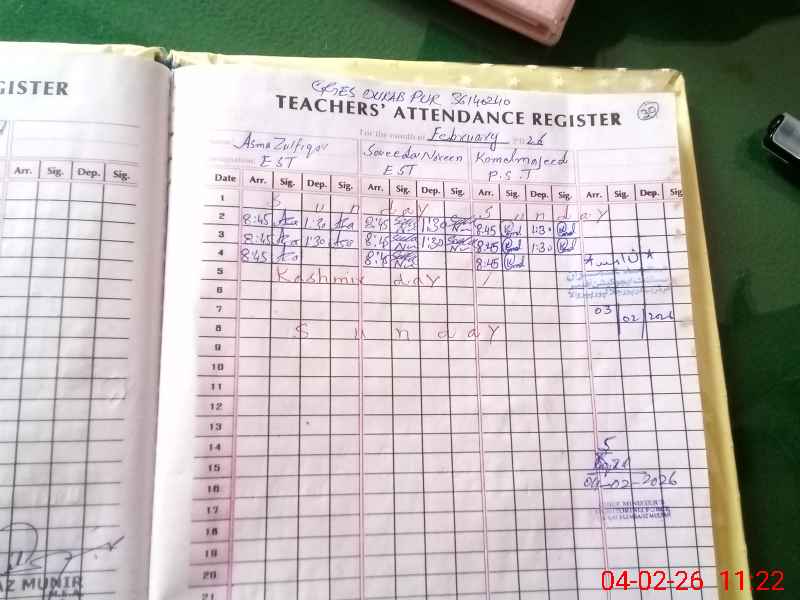 GISTER
GGES DURAB PUR 36140240
TEACHERS' ATTENDANCE REGISTER 39
For the month of February 2026
Asma Zulfiqar Saveeda Noreen Komal majeed
EST EST P.S.T
Arr. Sig. Dep. Sig. Date Arr. Sig. Dep. Sig. Arr. Sig. Dep. Sig. Arr. Sig. Dep. Sig. Arr. Sig. Dep. Sig
1 Sunday Sunday
2 8:45 1:30 8:45 1:30 8:45 1:30
3 8:45 1:30 8:45 1:30 8:45 1:30
4 8:45 8:45 8:45
5 Kashmir day
6
7 03 02 2026
8 Sunday
9
10
11
12
13
14 5
15
16 04-02-2026
17
18
19
20
21
AZ MUNIR
04-02-26 11:22